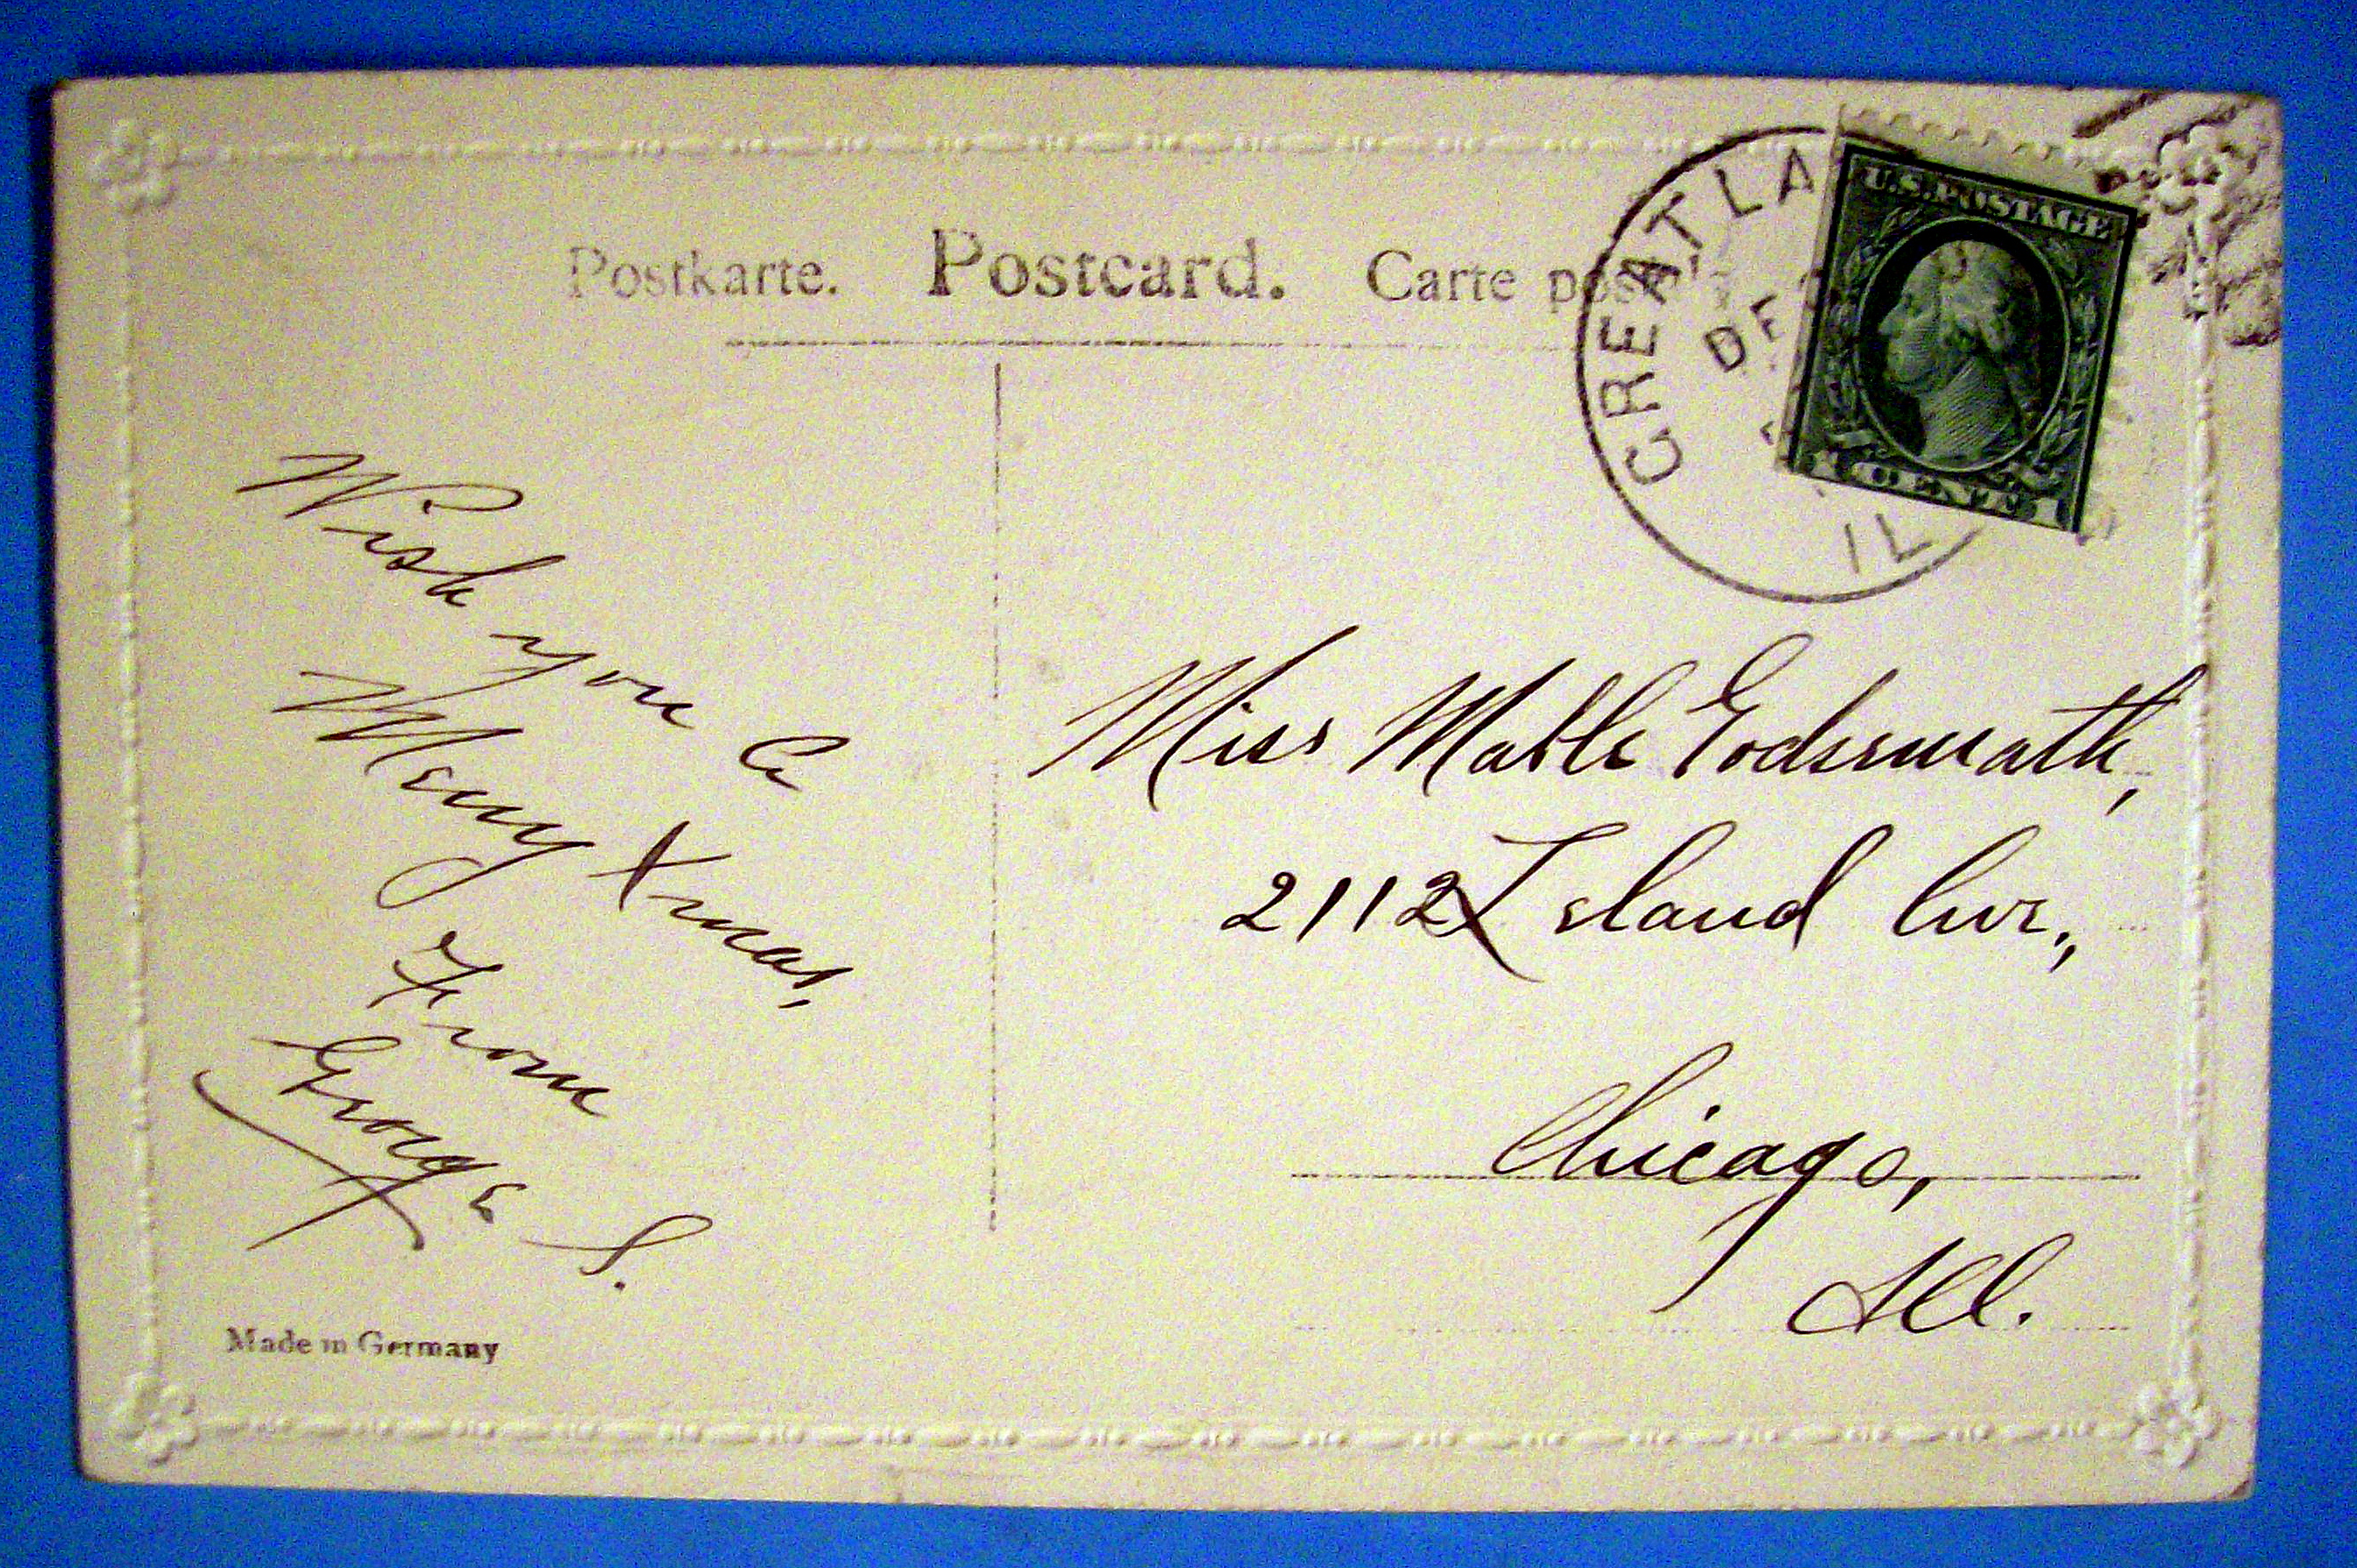 Postkarte. Postcard. Carte
GREAT LA
DE
IL
U.S. POSTAGE
1 CENT 1
Wish you a
Merry Xmas,
From
George S.
Miss Mable
2112 Island Ave.,
Chicago,
Ill.
Made in Germany